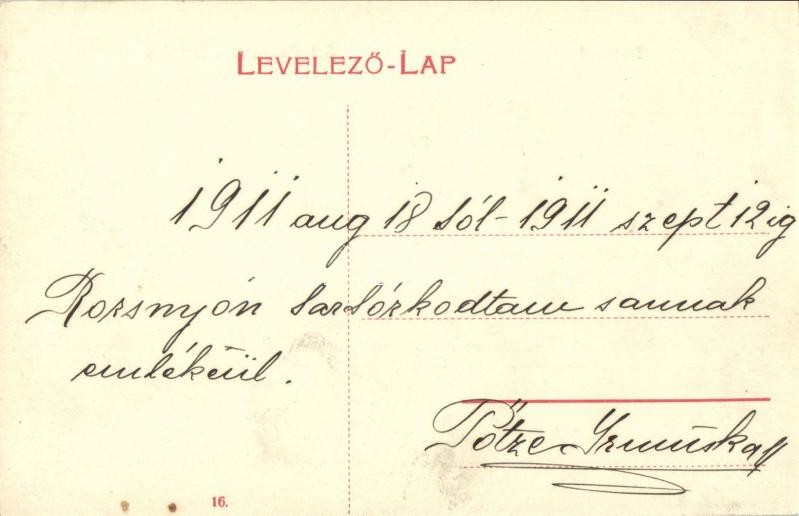 LEVELEZŐ-LAP
1911 aug 18 tól - 1911 szept 12 ig
Rozsnyón tartózkodtam sannak
emlékéül.
Pőtze Irmuska
16.